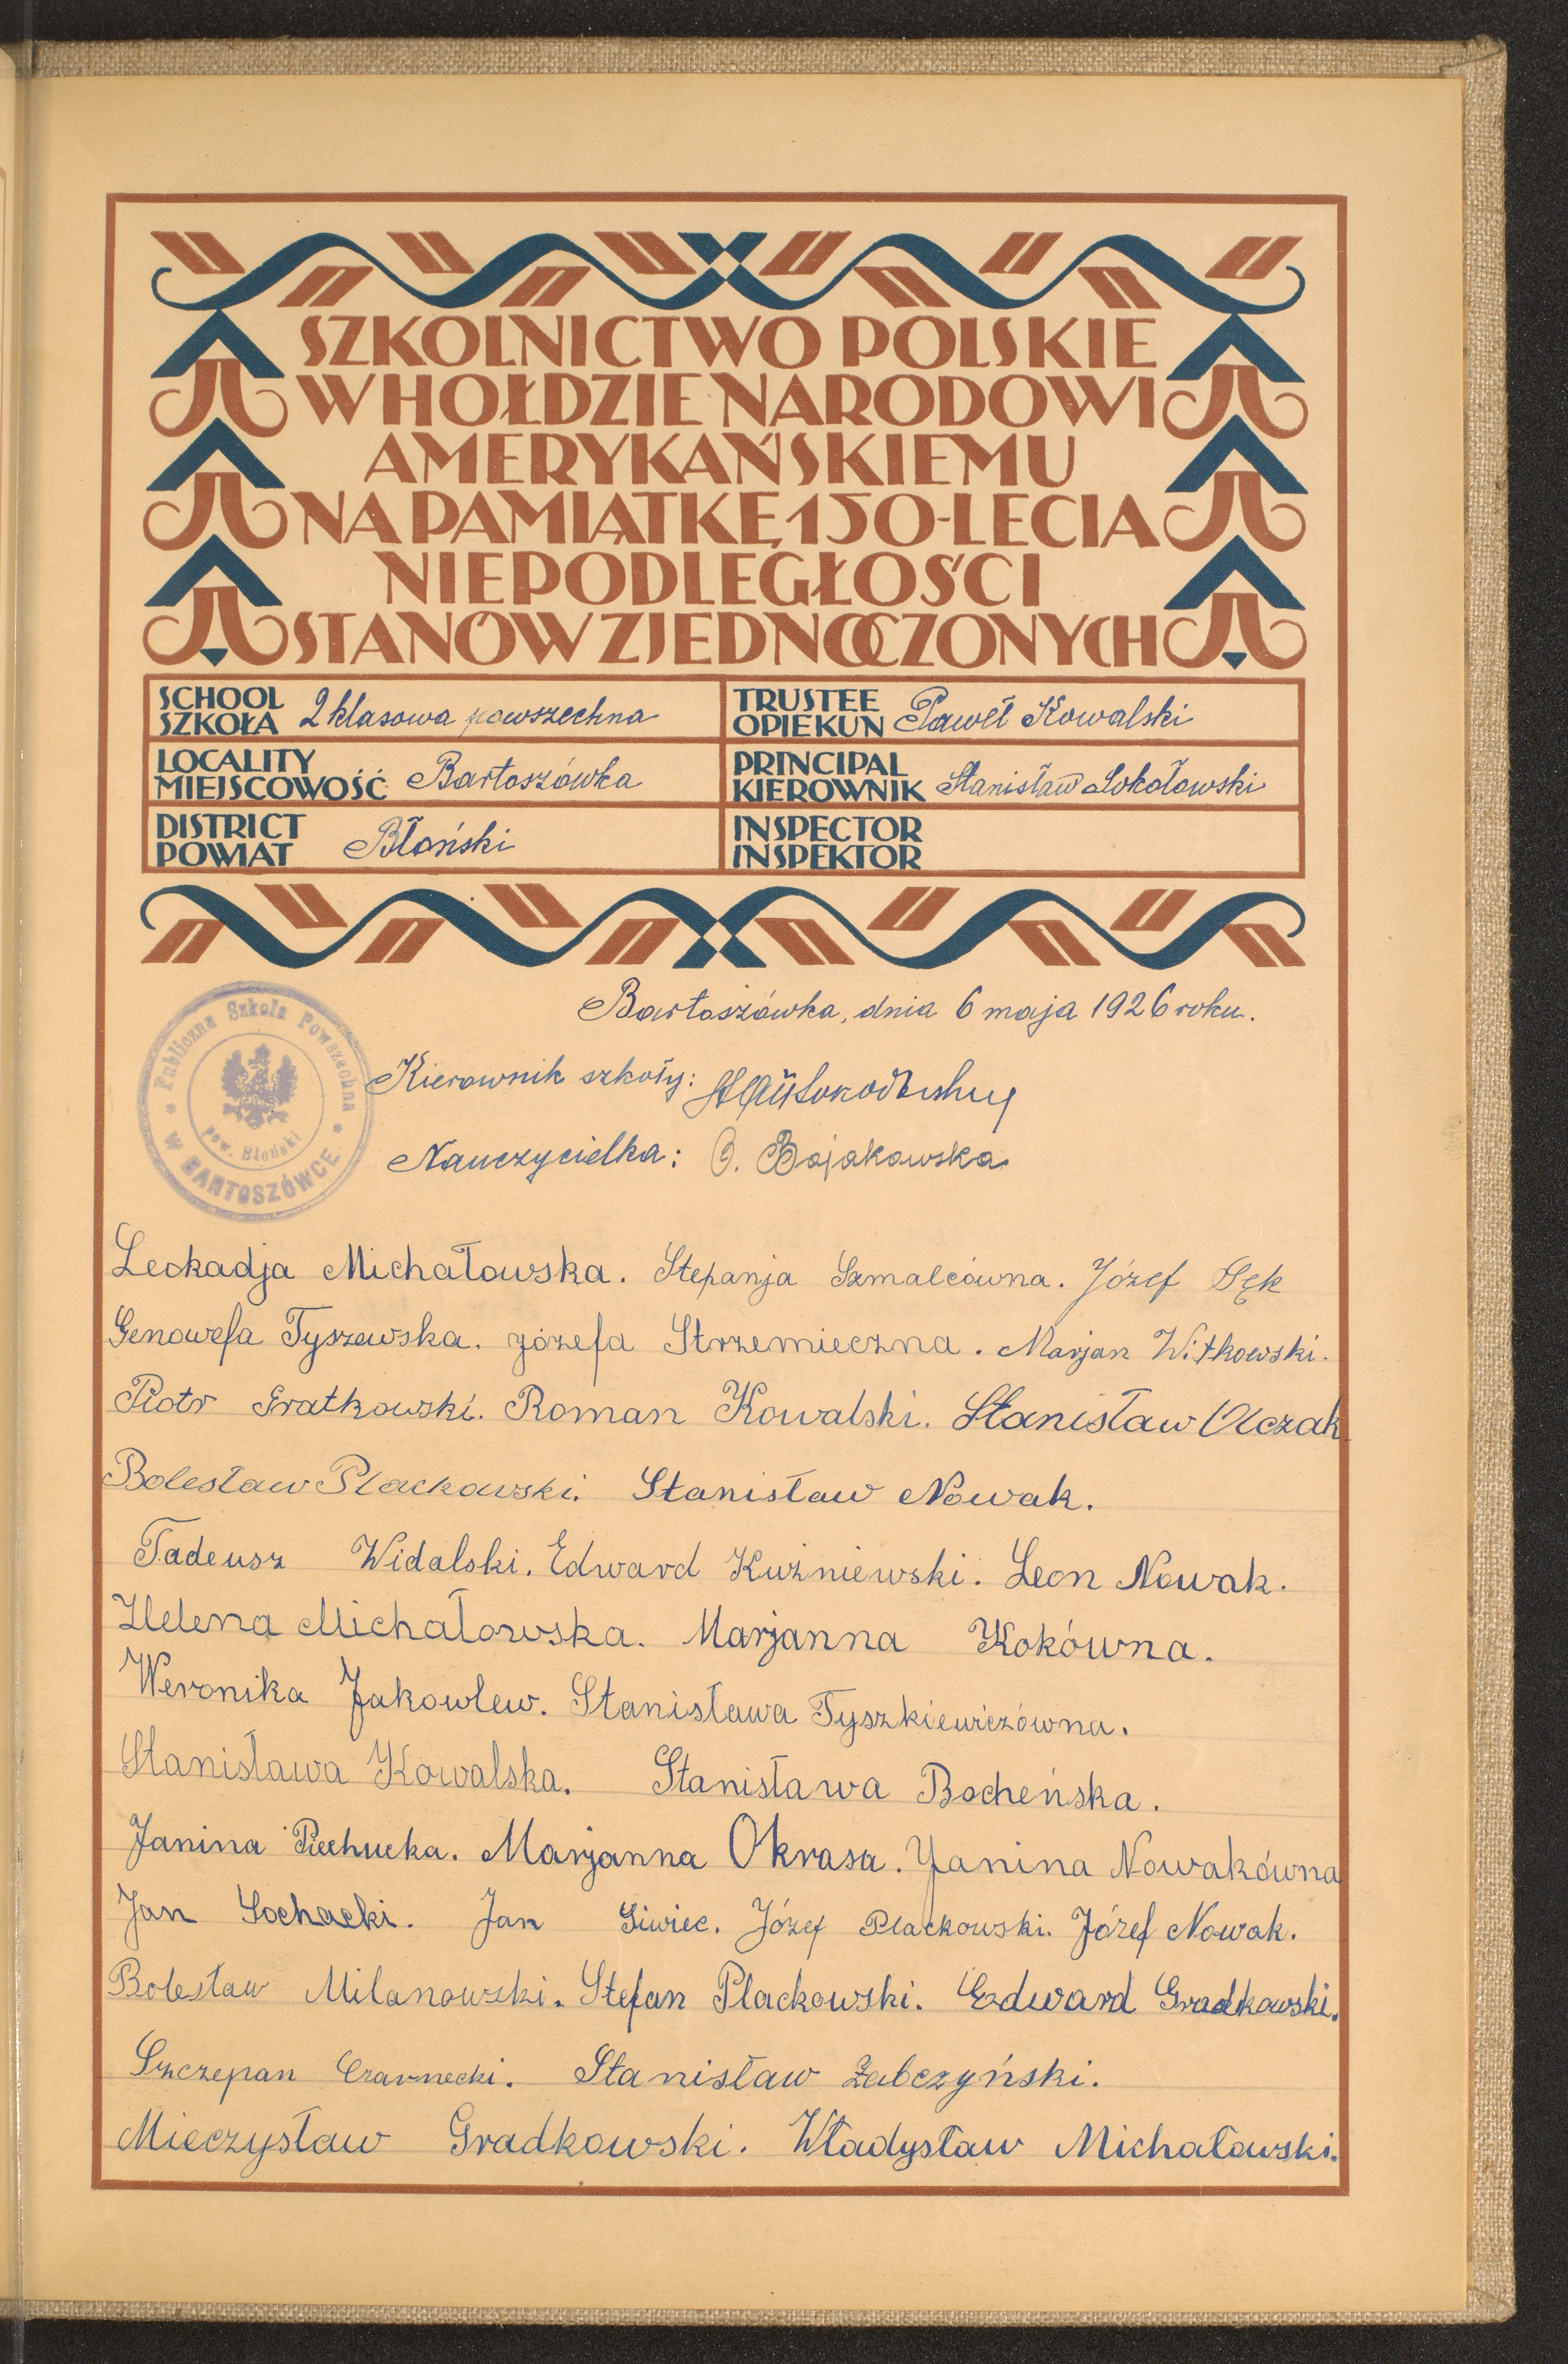 SZKOLNICTWO POLSKIE
W HOŁDZIE NARODOWI
AMERYKAŃSKIEMU
NA PAMIĄTKĘ 150-LECIA
NIEPODLEGŁOŚCI
STANÓW ZJEDNOCZONYCH
SCHOOL
SZKOŁA 2 klasowa powszechna
TRUSTEE
OPIEKUN Paweł Kowalski
LOCALITY
MIEJSCOWOŚĆ Bartoszówka
PRINCIPAL
KIEROWNIK Stanisław Sokołowski
DISTRICT
POWIAT Błoński
INSPECTOR
INSPEKTOR
Bartoszówka, dnia 6 maja 1926 roku.
Publiczna Szkoła Powszechna
W BARTOSZÓWCE
pow. Błoński
Kierownik szkoły:
Nauczycielka: O. Bojakowska
Leokadja Michałowska. Stefanja Szmalcówna. Józef Sęk
Genowefa Tyszewska. Józefa Strzemieczna. Marjan Witkowski.
Piotr Gratkowski. Roman Kowalski. Stanisław Olczak
Bolesław Plackowski. Stanisław Nowak.
Tadeusz Widalski. Edward Kuźniewski. Leon Nowak.
Helena Michałowska. Marjanna Kokówna.
Weronika Jakowlew. Stanisława Tyszkiewiczówna.
Stanisława Kowalska. Stanisława Bocheńska.
Janina Piechucka. Marjanna Okrasa. Janina Nowakówna
Jan Sochacki. Jan Siwiec. Józef Plackowski. Józef Nowak.
Bolesław Milanowski. Stefan Plackowski. Edward Gradkowski.
Szczepan Czarnecki. Stanisław Żabczyński.
Mieczysław Gradkowski. Władysław Michałowski.